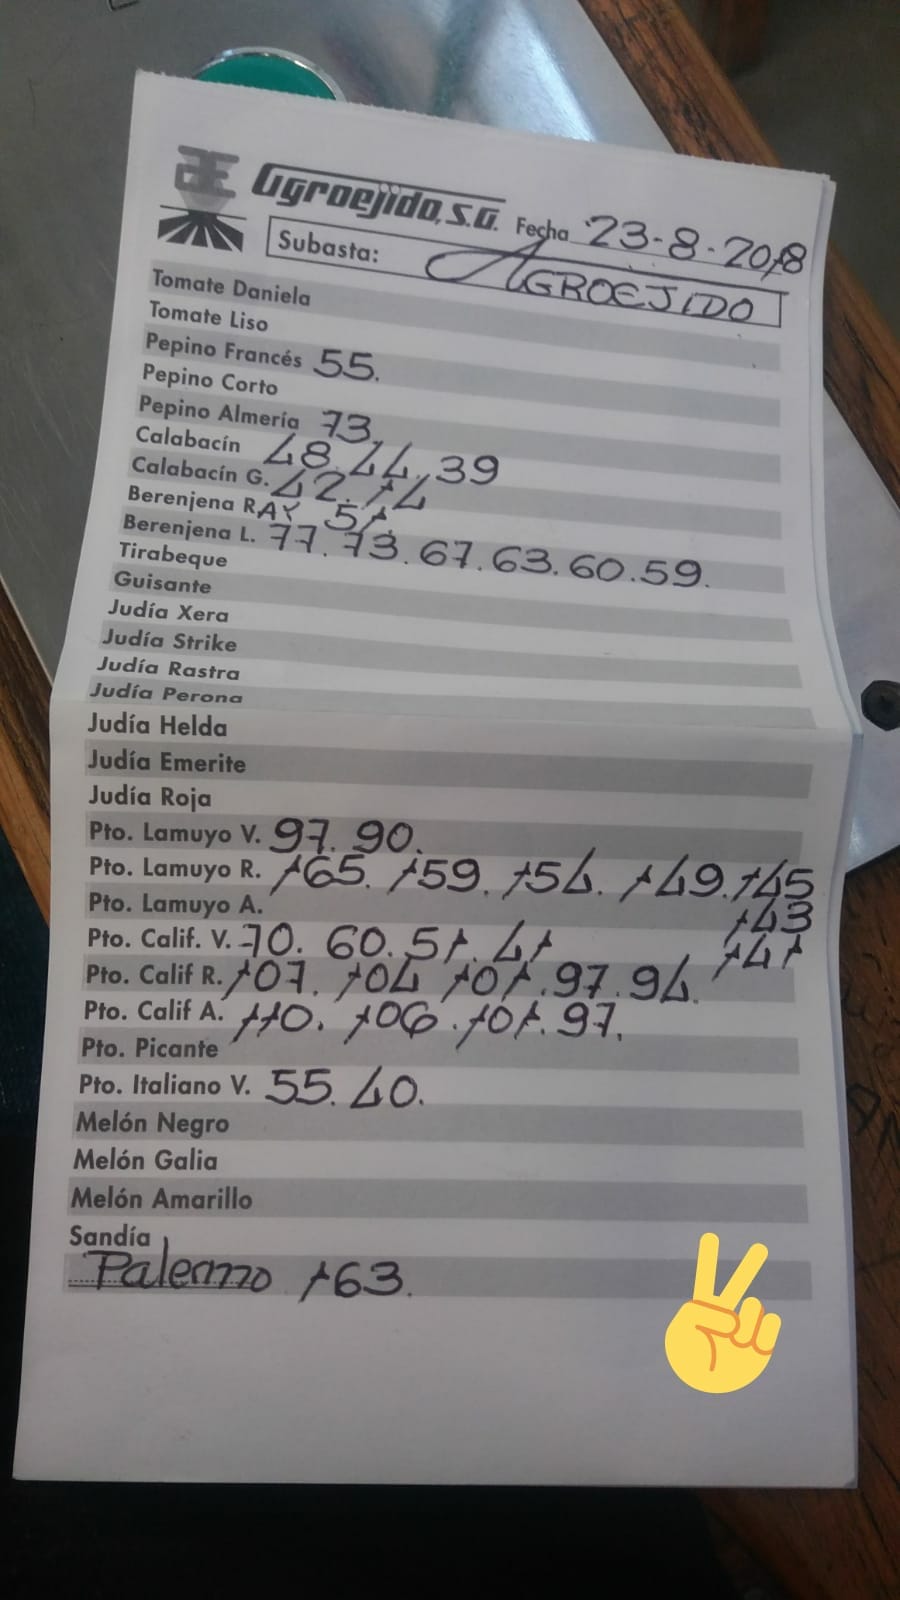 Agroejido, S.A. Fecha 23-8-2018
Subasta: AGROEJIDO
Tomate Daniela
Tomate Liso
Pepino Francés 55.
Pepino Corto
Pepino Almería 73.
Calabacín 48. 44. 39
Calabacín G. 42. 14
Berenjena RAY 51.
Berenjena L. 77. 73. 67. 63. 60. 59.
Tirabeque
Guisante
Judía Xera
Judía Strike
Judía Rastra
Judía Perona
Judía Helda
Judía Emerite
Judía Roja
Pto. Lamuyo V. 97. 90.
Pto. Lamuyo R. 165. 159. 154. 149. 145
Pto. Lamuyo A. 143
141
Pto. Calif. V. 70. 60. 51. 41
Pto. Calif R. 107. 104 101. 97. 94.
Pto. Calif A. 110. 106. 101. 97.
Pto. Picante
Pto. Italiano V. 55. 40.
Melón Negro
Melón Galia
Melón Amarillo
Sandía
Palermo 163.